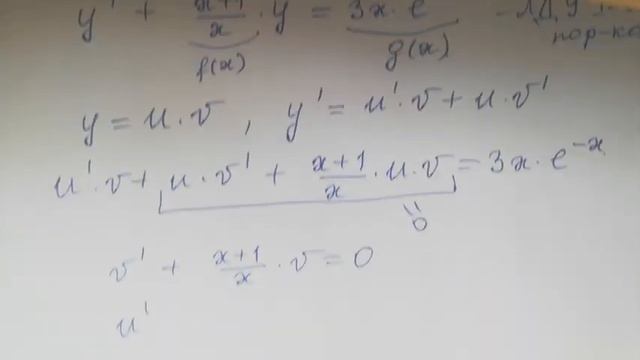 y' + \frac{x+1}{x} · y = 3x · e - ЛДУ 1...
f(x) g(x) пор-ка
y = u · v , y' = u' · v + u · v'
u' · v + u · v' + \frac{x+1}{x} · u · v = 3x · e^{-x}
=
0
v' + \frac{x+1}{x} · v = 0
u'